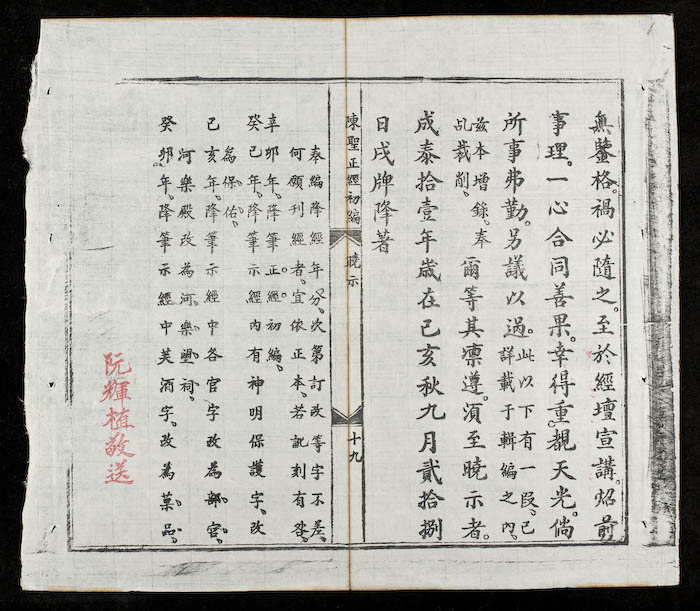 無鑒格。禍必隨之。至於經壇宣講。炤前
事理。一心合同善果。幸得重覩天光。倘
所事弗勤。另議以過。此以下有一叚。已詳載于輯編之內。
茲本增錄。奉乩裁削。爾等其凛遵。湏至曉示者。
成泰拾壹年歲在己亥秋九月貳拾捌
日戌牌降著
陳聖正經初編 曉示 十九
奉編降經年分。次第訂改等字不差。
何願刊經者。宜依正本。若訛刻有咎。
辛卯年。降筆正經初編。
癸巳年。降筆示經內有神明保護字。改
為保佑。
己亥年。降筆示經中各官字改為部官。
河樂殿改為河樂塱祠。
癸卯年。降筆示經中芙酒字。改為菓品。
阮輝植敬送